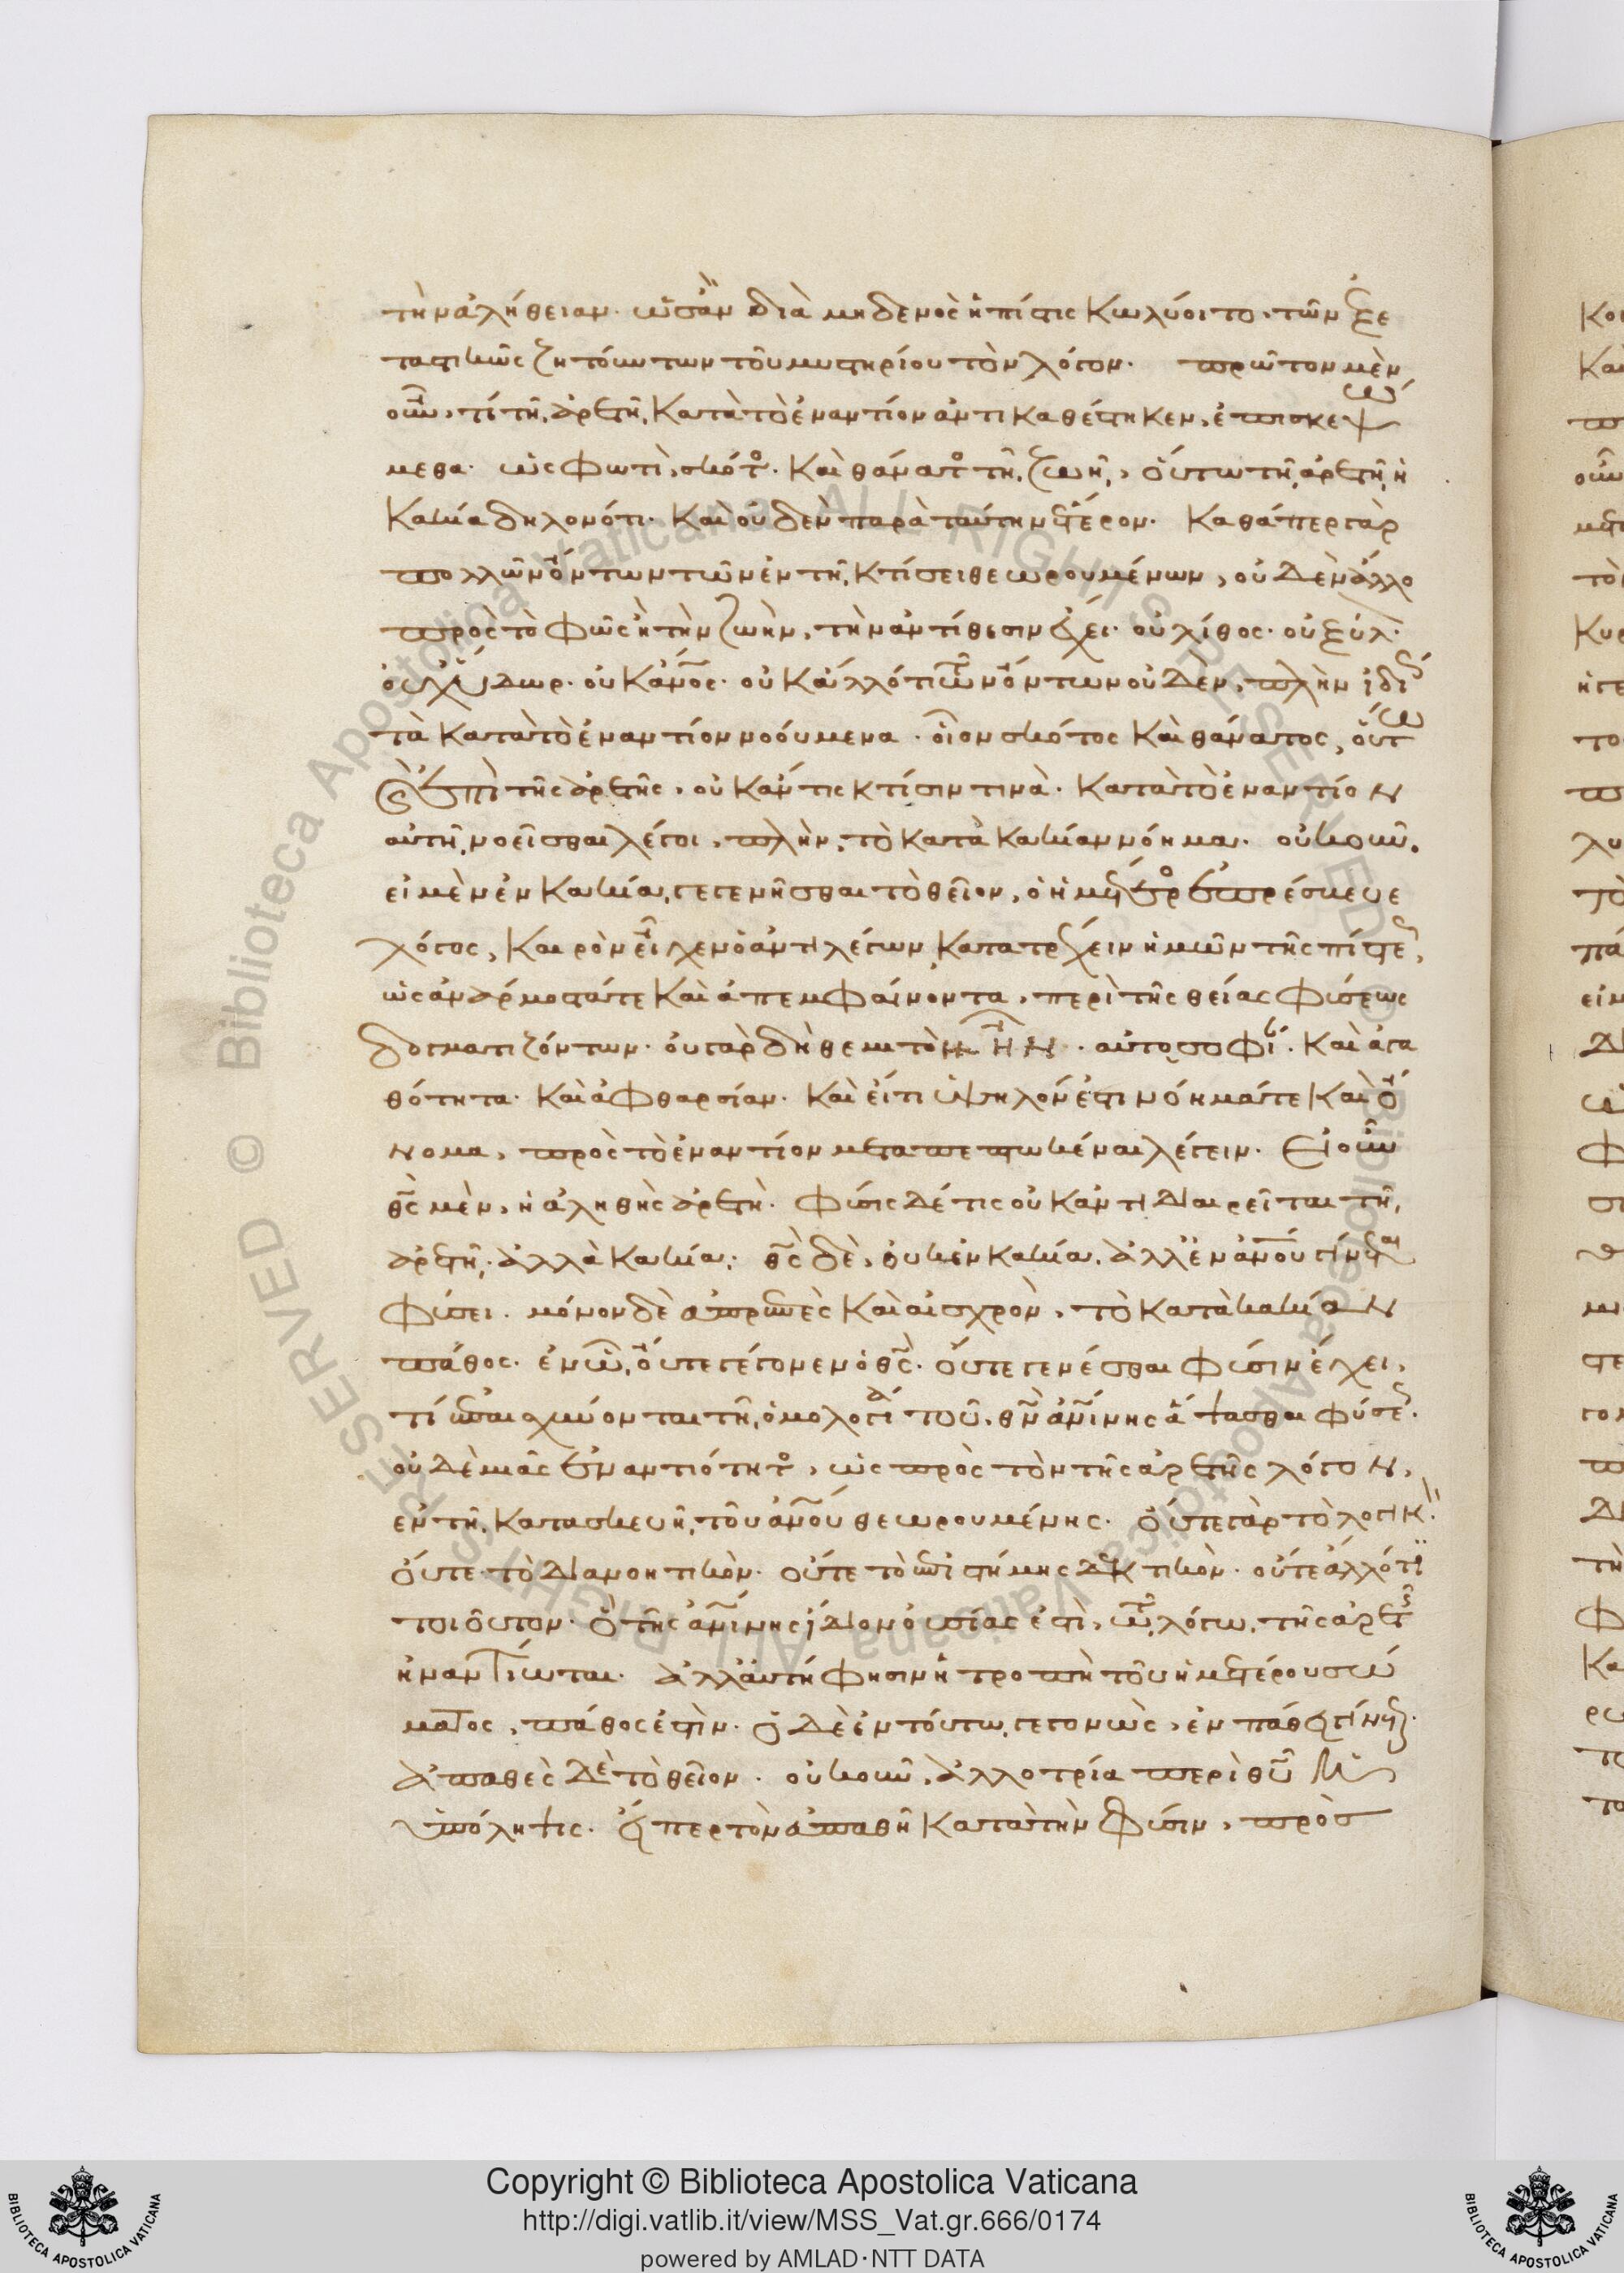 τὴν ἀλήθειαν· ὡς ἂν διὰ μηδενὸς ἡ πίστις κωλύοιτο, τῶν ἐξε
ταστικῶς ζητούντων τοῦ μυστηρίου τὸν λόγον· πρῶτον μὲν
οὖν, τί τῆ ἀρετῆ κατὰ τὸ ἐναντίον ἀντικαθέστηκεν, ἐπισκεψώ
μεθα· ὡς φωτὶ, σκότος· καὶ θάνατος τῆ ζωῆ, οὕτω τῆ ἀρετῆ ἡ
κακία δηλονότι· καὶ οὐδὲν παρὰ ταύτην ἕτερον· καθάπερ γὰρ
πολλῶν ὄντων τῶν ἐν τῆ κτίσει θεωρουμένων, οὐδὲν ἄλλο
πρὸς τὸ φῶς ἢ τὴν ζωὴν, τὴν ἀντίθεσιν ἔχει· οὐ λίθος· οὐ ξύλον·
οὐχ ὕδωρ· οὐκ ἄνος· οὐκ ἄλλό τι τῶν ὄντων οὐδὲν, πλὴν ἰδίως
τὰ κατὰ τὸ ἐναντίον νοούμενα· οἷον σκότος καὶ θάνατος, οὕτω
καὶ ἐπὶ τῆς ἀρετῆς, οὐκ ἄν τις κτίσιν τινὰ· κατὰ τὸ ἐναντίον
αὐτῆ νοεῖσθαι λέγοι, πλὴν, τὸ κατὰ κακίαν νόημα· οὐκοῦν
εἰ μὲν ἐν κακία γεγενῆσθαι τὸ θεῖον, ὁ ἡμέτερος ἐπρέσβευε
λόγος, καιρὸν εἶχεν ὁ ἀντιλέγων κατατρέχειν ἡμῶν τῆς πίστεως,
ὡς ἀνάρμοστά τε καὶ ἀπεμφαίνοντα, περὶ τῆς θείας φύσεως
δογματιζόντων· οὐ γὰρ δὴ θεμιτὸν ἦν· αὐτοσοφίαν· καὶ ἀγα
θότητα· καὶ ἀφθαρσίαν· καὶ εἴ τι ὑψηλόν ἐστι νόημά τε καὶ ὄ
νομα, πρὸς τὸ ἐναντίον μεταπεπτωκέναι λέγειν· Εἰ οὖν
θς μὲν, ἡ ἀληθὴς ἀρετὴ· φύσις δέ τις οὐκ ἀντιδιαιρεῖται τῆ
ἀρετῆ· ἀλλὰ κακία· θς δὲ, οὐκ ἐν κακία, ἀλλ' ἐν ἀνου γίνεται
φύσει· μόνον δὲ ἀπρεπὲς καὶ αἰσχρὸν, τὸ κατὰ κακίαν
πάθος· ἐν ῶ, οὔτε γέγονεν ὁ θς· οὔτε γενέσθαι φύσιν ἔχει,
τί ἐπαισχύνονται τῆ ὁμολογία τοῦ, θν ἀνινης ἅψασθαι φύσεως·
οὐδεμιᾶς ἐναντιότητος, ὡς πρὸς τὸν τῆς ἀρετῆς λόγον,
ἐν τῆ κατασκευῆ τοῦ ἀνου θεωρουμένης· οὔτε γὰρ τὸ λογικὸν·
οὔτε τὸ διανοητικὸν· οὔτε τὸ ἐπιστήμης δεκτικὸν· οὔτε ἄλλό τι
τοιοῦτον· ὃ τῆς ἀνινης ἴδιον οὐσίας ἐστὶ, τῶ λόγω τῆς ἀρετῆς
ἠναντίωται· ἀλλ' αὐτή φησιν ἡ τροπὴ τοῦ ἡμετέρου σώ
ματος, πάθος ἐστὶν· ὁ δὲ ἐν τούτω γεγονὼς, ἐν πάθει γίνεται·
ἀπαθὲς δὲ τὸ θεῖον· οὐκοῦν, ἀλλοτρία περὶ θυ ἡ
ὑπόληψις· εἴπερ τὸν ἀπαθῆ κατὰ τὴν φύσιν, πρὸς
Copyright © Biblioteca Apostolica Vaticana
http://digi.vatlib.it/view/MSS_Vat.gr.666/0174
powered by AMLAD·NTT DATA